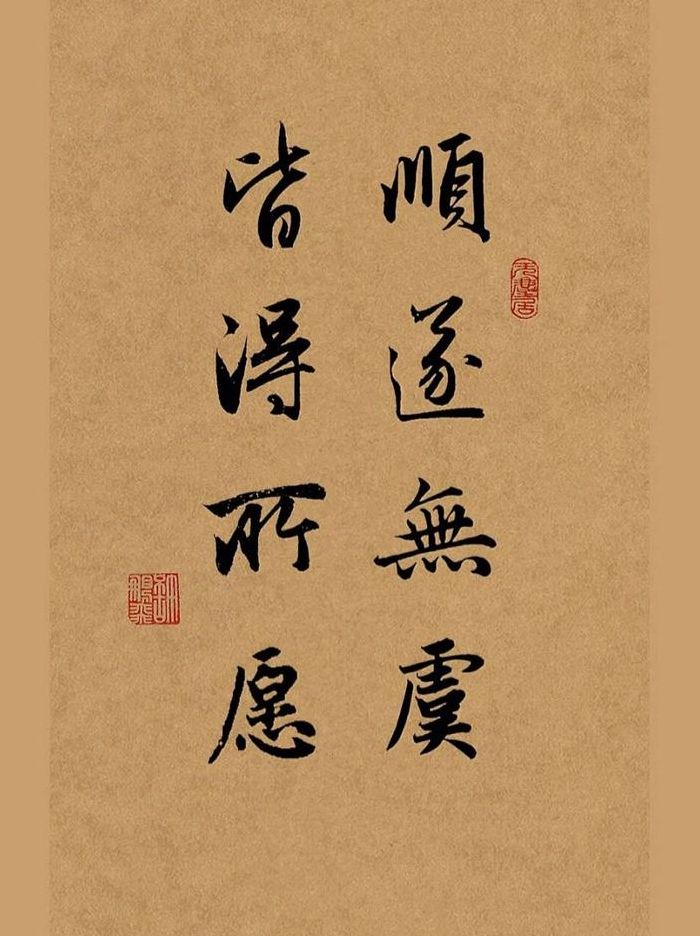 順遂無虞
皆得所愿